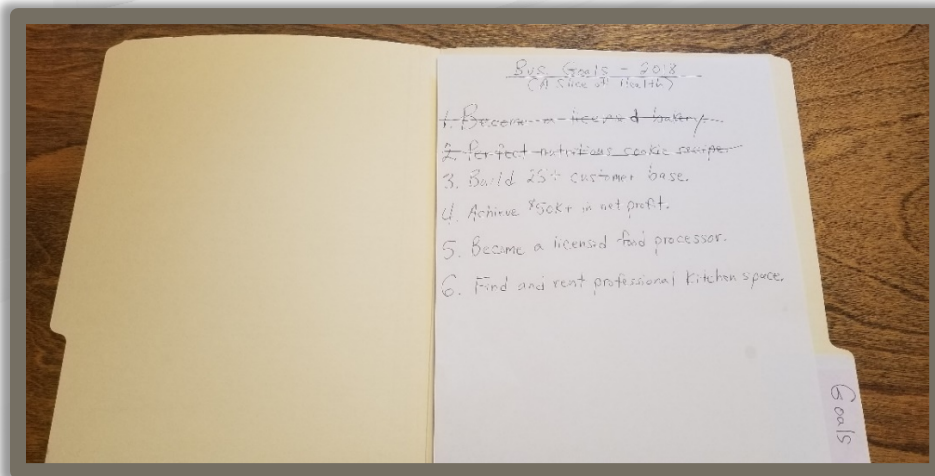 Bus. Goals - 2018
(A Slice of Health)
1. Become a licensed bakery.
2. Perfect nutritious cookie recipe
3. Build 25+ customer base.
4. Achieve $50K+ in net profit.
5. Become a licensed food processor.
6. Find and rent professional kitchen space.
Goals